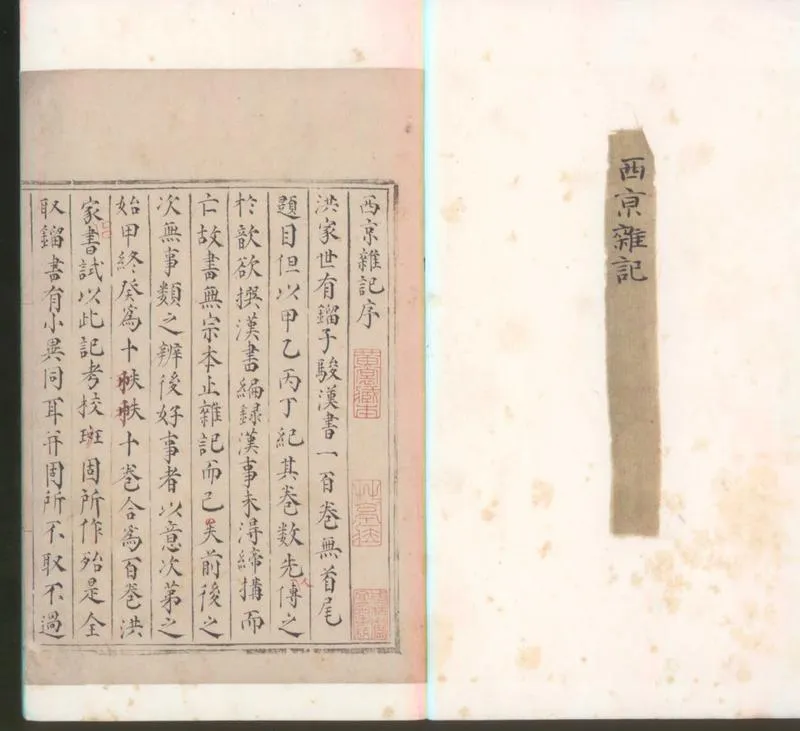 西亰雜記
西亰雜記序
洪家世有鎦子駿漢書一百卷無首尾
題目但以甲乙丙丁紀其卷數先傳之
於歆欲撰漢書編録漢事未得締搆而
亡故書無宗本止雜記而已矣前後之
次無事類之辨後好事者以意次第之
始甲終癸爲十帙帙十卷合爲百卷洪
家書試以此記考校班固所作殆是全
取鎦書有小異同耳并固所不取不過